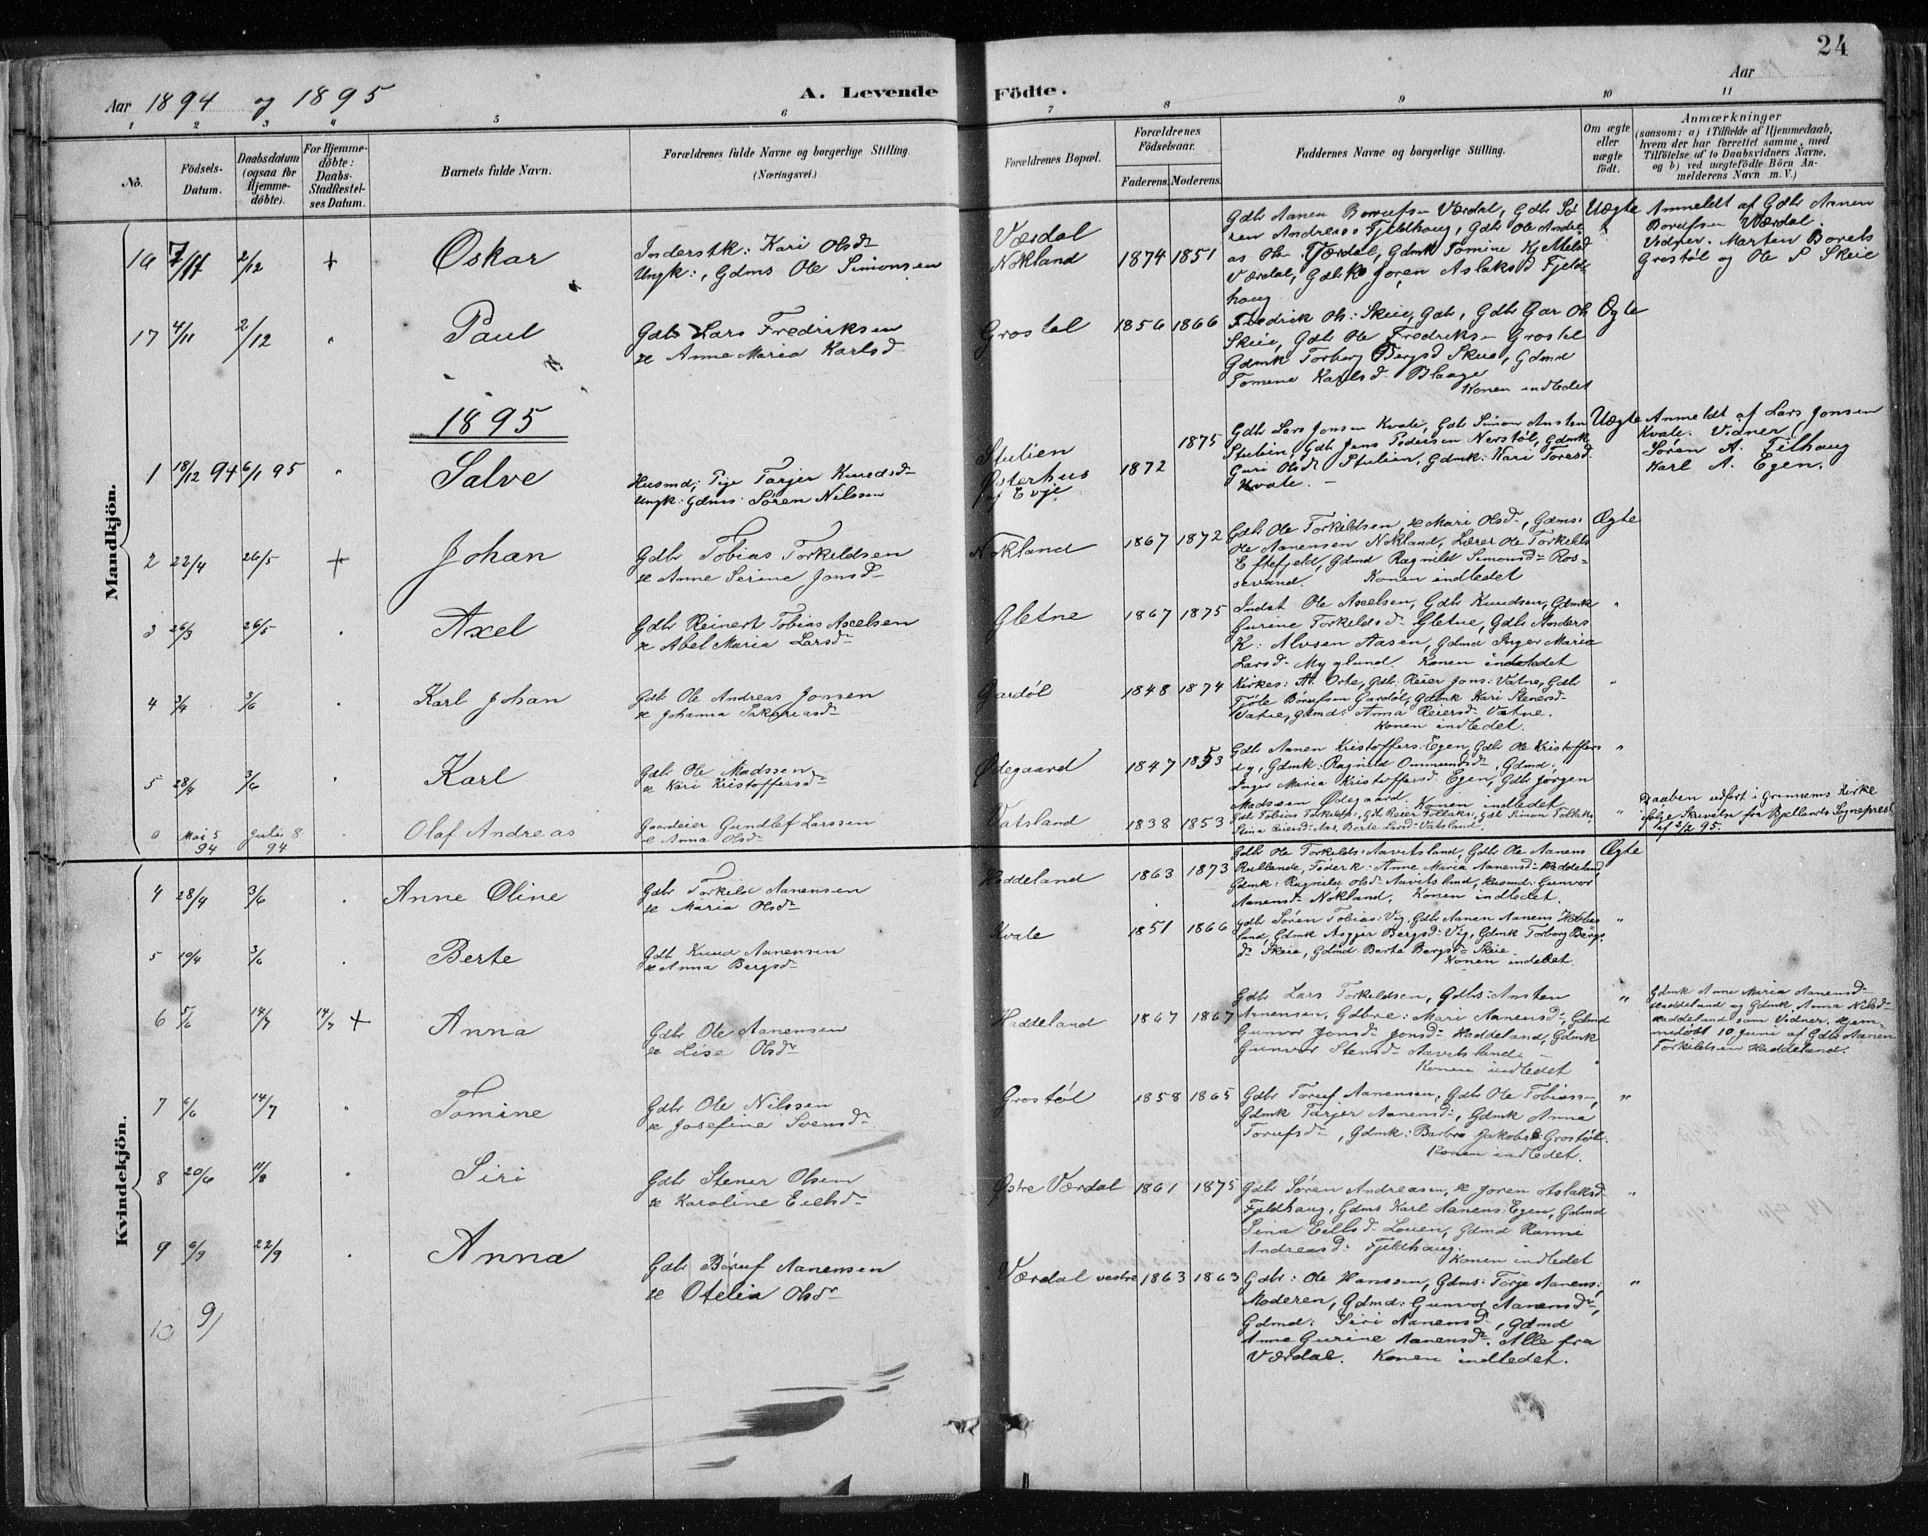 24
Aar 1894 og 1895
A. Levende Födte.
Aar
1 2 3 4 5 6 7 8 9 10 11
No.
Födsels-Datum.
Daabsdatum (ogsaa for Hjemme-döbte).
For Hjemme-döbte: Daabs-Stadfæstel-ses Datum.
Barnets fulde Navn.
Forældrenes fulde Navne og borgerlige Stilling.
(Næringsvei.)
Forældrenes Bopæl.
Forældrenes Födselsaar.
Faderens. Moderens.
Faddernes Navne og borgerlige Stilling.
Om ægte eller uægte født.
Anmærkninger
(saasom: a) i Tilfælde af Hjemmedaab,
hvem der har forrettet samme, med
Tilföielse af to Daabsvidners Navne,
og b) ved uægtefödte Börn An-
melderens Navn m. V.)
Mandkjön.
2/12 + Oskar
Inderstk: Kari Olsdr
Ungk:, Gdms Ole Simonsen
Værdal
Nokland
1874 1851
Gdbr Aanen Borufsn Værdal, Gdbr Sø
ren Andreass Fjeldhaug, Gdbr Ole Andre
as Ols: Værdal, Gdmk Tomine
Værdal, Joren Aslaksd Fjeld-
haug
Uægte
Anmeldt af Gdbr Aanen
Borufsen Værdal.
Vidner. Marten Borels
Grostøl og Ole S Skeie
17 4/11 2/12 " Paul
Gdbr Lars Fredriksen
& Anne Maria Karlsd
Grostøl
1856 1866
Fredrik Ols: Skeie, Gdb, Gdbr Ols
Skeie, Gdbr Ole Fredriksn Grostøl
Gdmk Torborg Bergsd Skeie, Gdmd
Tomene Karlsd
Konen indledet
Ægte
1895
1 18/12 94 6/1 95 " Salve
Husmd; Pige Tarjer Knudsdr
Ungk: Gdms: Søren Nilssen
Stulien
Østerhus
af Evje
1872 1875
Gdbr Lars Jonsen Kvale, Gdb Simon Austen
Stulien, Gdb Jens Pedersen Nerstøl, Gdmk
Guri Olsdr Stulien, Gdmk: Kari Toresd
Kvale. –
Uægte
Anmeldt af Lars Jonsen
Kvale. Vidner
Søren A. Eilhaug
Karl A. Egen.
2 22/4 26/5 + Johan
Gdbr Tobias Torkildsen
& Anne Serine Jonsd
Nokland
1867 1872
Gdb Ole Torkildsen, & Mari Olsd, Gdms:
Ole Aanensen Nokland, Lærer Ole Torkilds
Eftefjeld, Gdmd Ragnild Simonsd Ros-
sevand. Konen indledet
Ægte
3 26/3 26/5 " Axel
Gdbr Reinert Tobias Axelsen
& Abel Maria Larsdr
Gletne
1867 1875
Indst Ole Axelsen, Gdbr Knudsen, Gdmk
Gurine Torkildsd Gletne, Gdbr Anders
K: Aasen, Gdmd Inger Maria
Larsd Myglund. Konen indledet
"
4 3/4 3/6 " Karl Johan
Gdbr Ole Andreas Jonsen
& Johanna Sakariasdr
Gardøl
1848 1874
Kirkes: At. Orte, Gdb: Reier Jons: Vatne, Gdb
Fjøle Børufsen Gardøl, Gdmk Kari Stenersd
Vatne, Gdmd: Anna Reiersd Vatne.
Konen indledet.
"
5 28/4 3/6 " Karl
Gdbr Ole Madssen
& Kari Kristoffersdr
Ødegaard
1847 1853
Gdb Aanen Kristoffers: Egen, Gdbr Ole Kristoffers
dy, Gdmk: Ragnild Ommundsdr, Gdmd:
Inger Maria Kristoffersd Egen, Gdb Jørgen
Madssen Ødegaard. Konen indledet
"
0 Mai 5 94 Juli 8 94 Olaf Andreas
Gaardeier Gundlef Larssen
& Anna Olsdr
Vatsland
1838 1853
Gdb Tobias Torkelsn, Gdb Reier Follaks:, Gdb Simon Follaks
Stina Reiersd Aas, Berte Larsd Vatsland.
"
Daaben udført i Grinnems Kirke
følge Skrivelse fra Bjellands Sognepræst
af 2/2 95.
Kvindekjön.
4 28/4 3/6 " Anne Oline
Gdbr Torkild Aanensen
& Maria Olsdr
Haddeland
1863 1873
Gdbr Ole Torkilds: Aavitsland, Gdb Ole Aanens
Rullande, Føderk: Anne Maria Aanensd Haddeland
Gdmk: Ragnild Olsd Aavitsland, Husmd: Gunvor
Aanensd Nokland, Konen indledet.
Ægte
5 19/4 3/6 " Berte
Gdb Knud Aanensen
& Anna Bergsdr
Kvale
1851 1866
Gdb Søren Tobias: Vig, Gdb Aanen Aanens
land, Gdmk Asgjer Bergsd: Vig, Gdmk Torborg Bergs
dr Skeie, Gdmd Berte Bergsd Skeie
Konen indledet.
"
6 5/6 14/7 14/7 + Anna
Gdbr Ole Aanensen
& Lise Olsdr
Haddeland
1867 1867
Gdb Lars Torkildsen, Gdbs: Austen
Aanensen, Gdbre: Mari Aanensd, Gdmd
Gunvor Jonsd Jonsd Haddeland, Gdmk
Gunvor Stensd Aavitsland. –
Konen indledet
"
Gdmk Anne Maria Aanensd
Haddeland og Gdmk. Anna Nilsd
Haddeland som Vidner. Hjem-
medøbt 10 Juni af Gdb Aanen
Torkildsen Haddeland.
7 6/6 14/7 " Tomine
Gdbr Ole Nilssen
& Josefine Svensdr
Grostøl
1858 1865
Gdbr Toruf Aanensen, Gdbr Ole Tobiassn,
Gdmk Tarjer Aanensd, Gdmk Anna
Torufsdr, Gdmk: Barbro Jakobsd Grostøl.
Konen indledet.
"
8 20/6 11/8 " Siri
Gdbr Stener Olsen
& Karoline Eielsdr
Østre Værdal
1861 1875
Gdbr Søren Andreasen, & Joren Aslaksd
Fjeldhaug, Gdms Karl Aanens: Egen, Gdmd
Sina Eilsd Louen, Gdmd Ranni
Andreasd: Fjeldhaug:
Konen indledet
"
9 6/9 22/9 " Anna
Gdbr Børuf Aanensen
& Otelia Olsdr
Værdal vestre
1863 1863
Gdbr: Ole Hanssen, Gdms: Torje Aanens:
Moderen, Gdmd: Gunvor Aanensdr,
Gdmd: Siri Aanensd, Gdmd
Anne Gurine Aanensdr. Alle fra
Værdal. Konen indledet.
"
10 9/